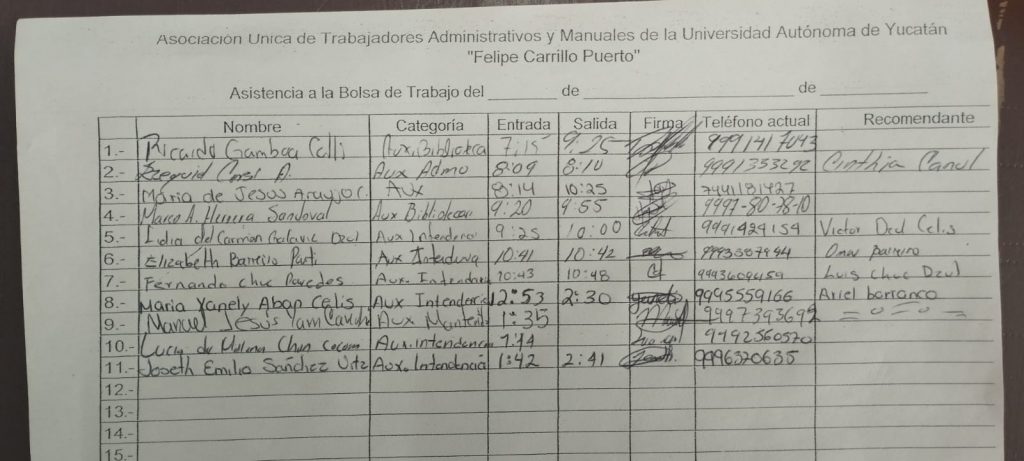 Asociación Única de Trabajadores Administrativos y Manuales de la Universidad Autónoma de Yucatán
"Felipe Carrillo Puerto"
Asistencia a la Bolsa de Trabajo del ______ de ______ de ______
Nombre Categoría Entrada Salida Firma Teléfono actual Recomendante
1.- Ricardo Gamboa Celli Aux. Biblioteca 7:15 9:25 9991417043
2.- A. Aux Admo 8:09 8:10 9991353292 Cinthia Canul
3.- Maria de Jesus Araujo C. Aux 8:14 10:25 7441181427
4.- Marco A. Herrera Sandoval Aux Biblioteca 9:20 9:55 9997-80-78-10
5.- Lidia del Carmen Dzul Aux Intendencia 9:25 10:00 9991424154 Victor Dzul Celis
6.- Elizabeth Barreiro Aux Intendencia 10:41 10:42 Omar Barreiro
7.- Fernando Chuc Paredes Aux. Intendencia 10:43 10:48 9993604154 Luis Chuc Dzul
8.- Maria Yanely Aban Celis Aux Intendencia 12:53 2:30 9995559166 Ariel barranco
9.- Manuel Jesus Tam Aux Mantento 1:35 9997393692
10.- Lucia de Chan Cocom Aux. intendencia 9992560520
11.- Joseth Emilio Sánchez Uitz Aux. Intendencia 1:42 2:41 9996320635
12.-
13.-
14.-
15.-